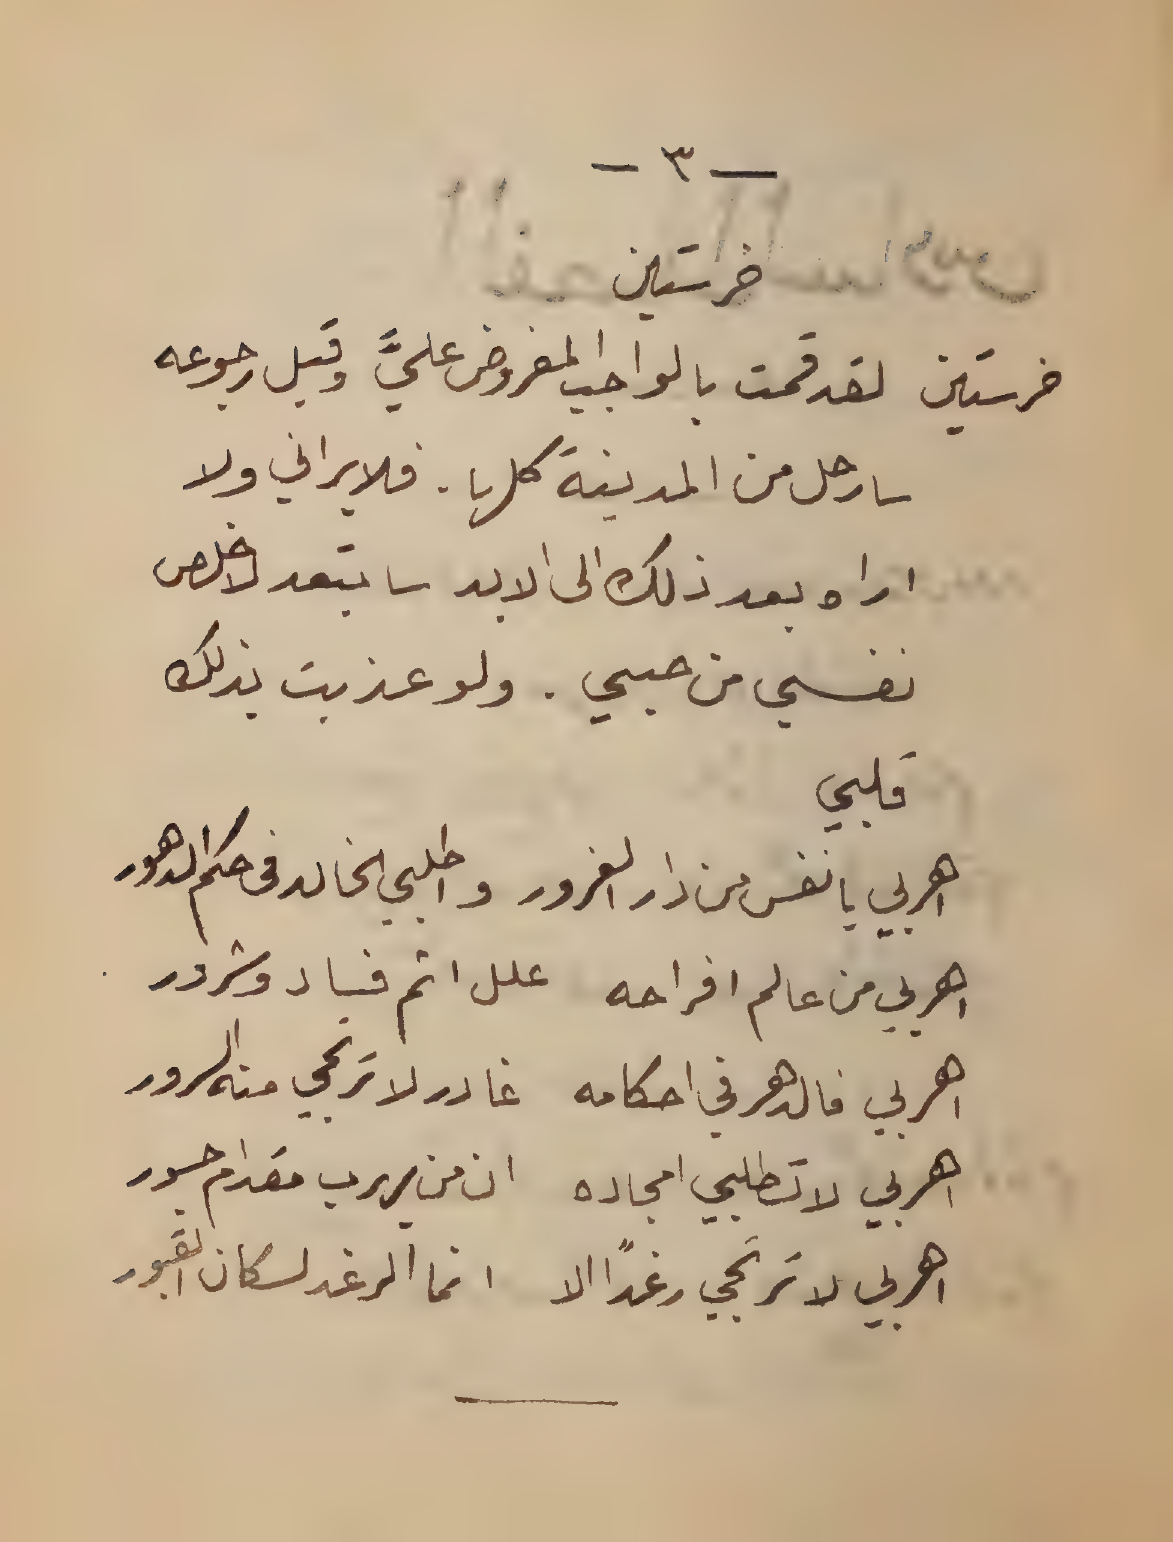 — ٣ —
خرستين
خرستين لقد قمت بالواجب المفروض عليَّ وقبل رجوعه
سارحل من المدينة كلها . فلا يراني ولا
اراه بعد ذلك الى الابد سابتعد لاخلص
نفسي من حبي . ولو عذبت بذلك
قلبي
اهربي يا نفس من دار الغرور واطلبي الخالد في حكم الدهور
اهربي من عالم افراحه علل اثم فساد وشرور
اهربي فالدهر في احكامه غادر لا ترتجي منه السرور
اهربي لا تطلبي امجاده ان من يهرب مقدام جسور
اهربي لا ترتجي رغدًا الا انما الرغد لسكان القبور